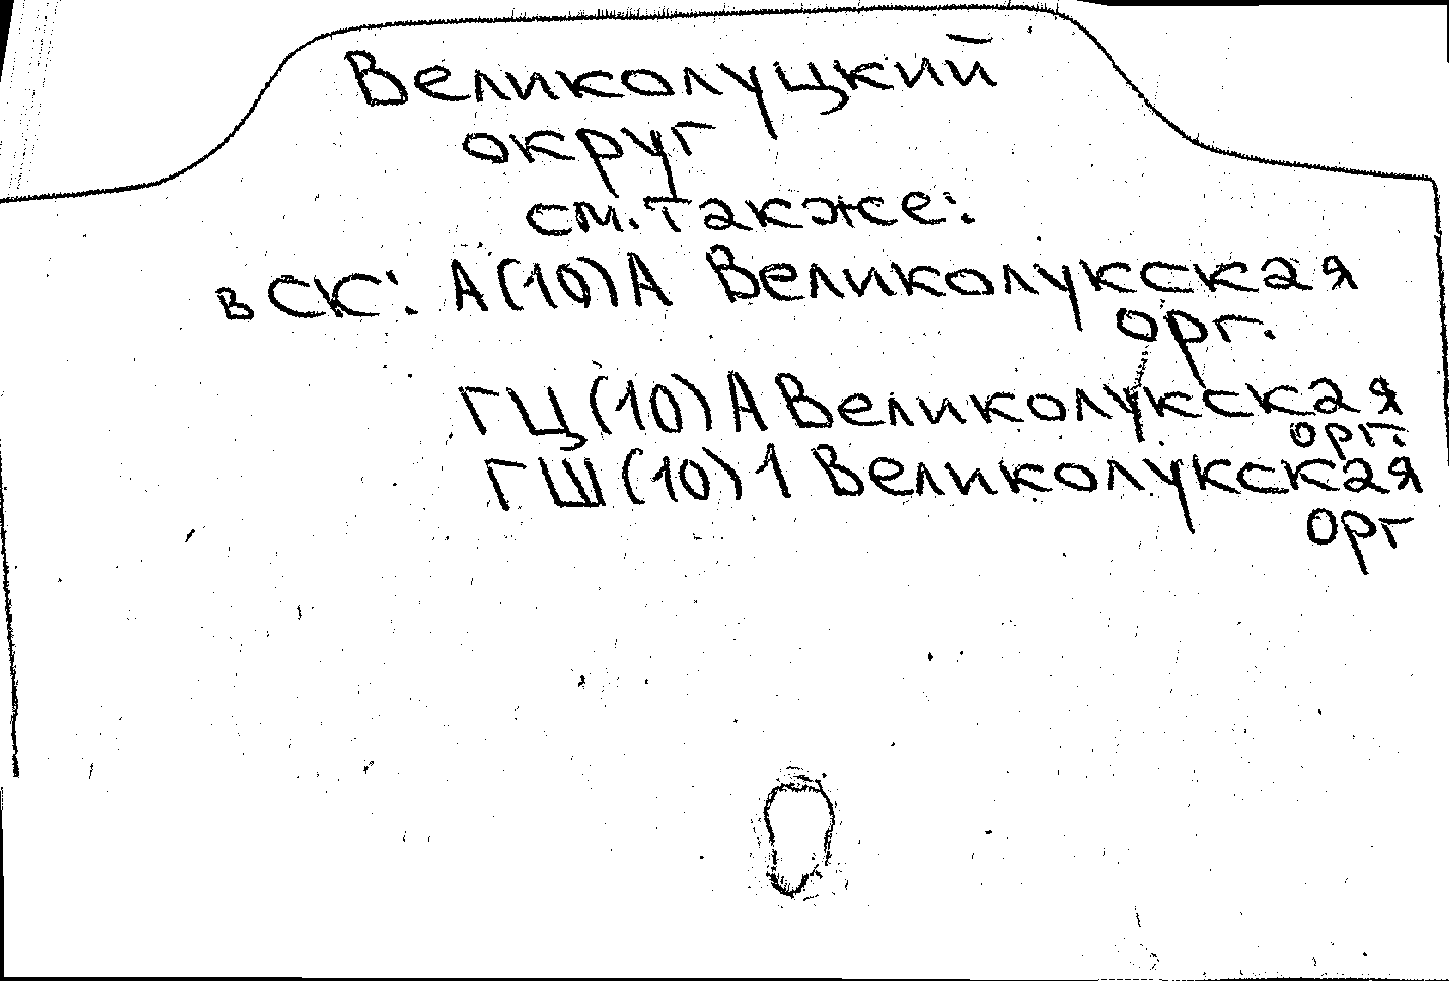 Великолуцкий
округ
см. также:
в СК: А(10)А Великолукская
орг.
ГЦ(10)А Великолукская
орг.
ГШ(10)1 Великолукская
орг